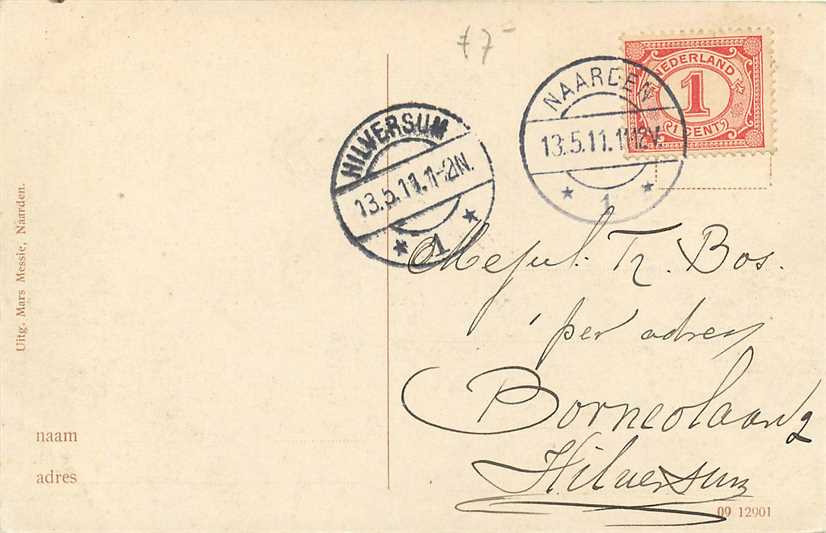 £ 7-
NEDERLAND
1
1 CENT
NAARDEN
13.5.11.11-12V.
1
HILVERSUM
13.5.11.1-2N.
1
Mejuf. Tr. Bos.
per adres
Borneolaan 2
Hilversum
Uitg. Mars Messie, Naarden.
naam
adres
09 12901